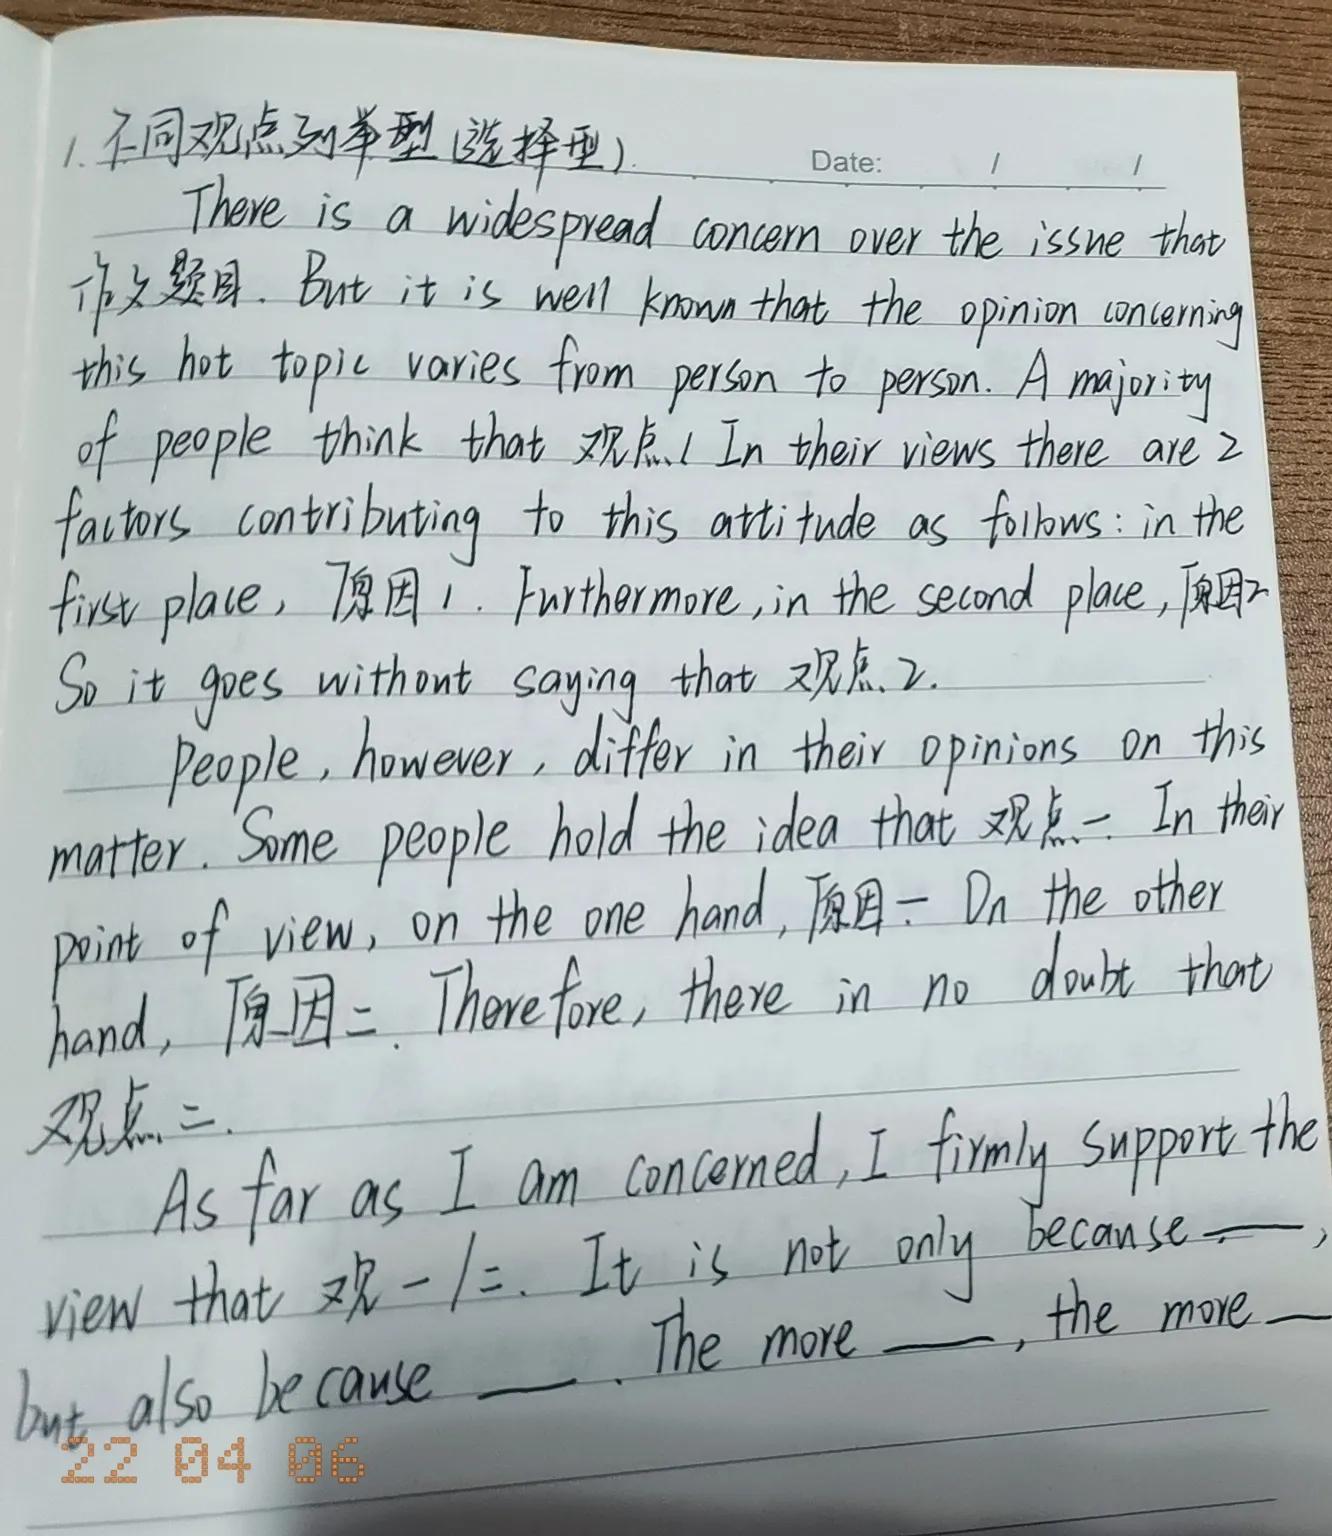 1. 不同观点列举型(选择型).
Date: / /
There is a widespread concern over the issue that
作文题目. But it is well known that the opinion concerning
this hot topic varies from person to person. A majority
of people think that 观点1 In their views there are 2
factors contributing to this attitude as follows: in the
first place, 原因1. Furthermore, in the second place, 原因2
So it goes without saying that 观点2.
People, however, differ in their opinions on this
matter. Some people hold the idea that 观点一. In their
point of view, on the one hand, 原因一 On the other
hand, 原因二. Therefore, there in no doubt that
观点二.
As far as I am concerned, I firmly support the
view that 观一/二. It is not only because ——,
but also because ——. The more ——, the more —
22 04 06